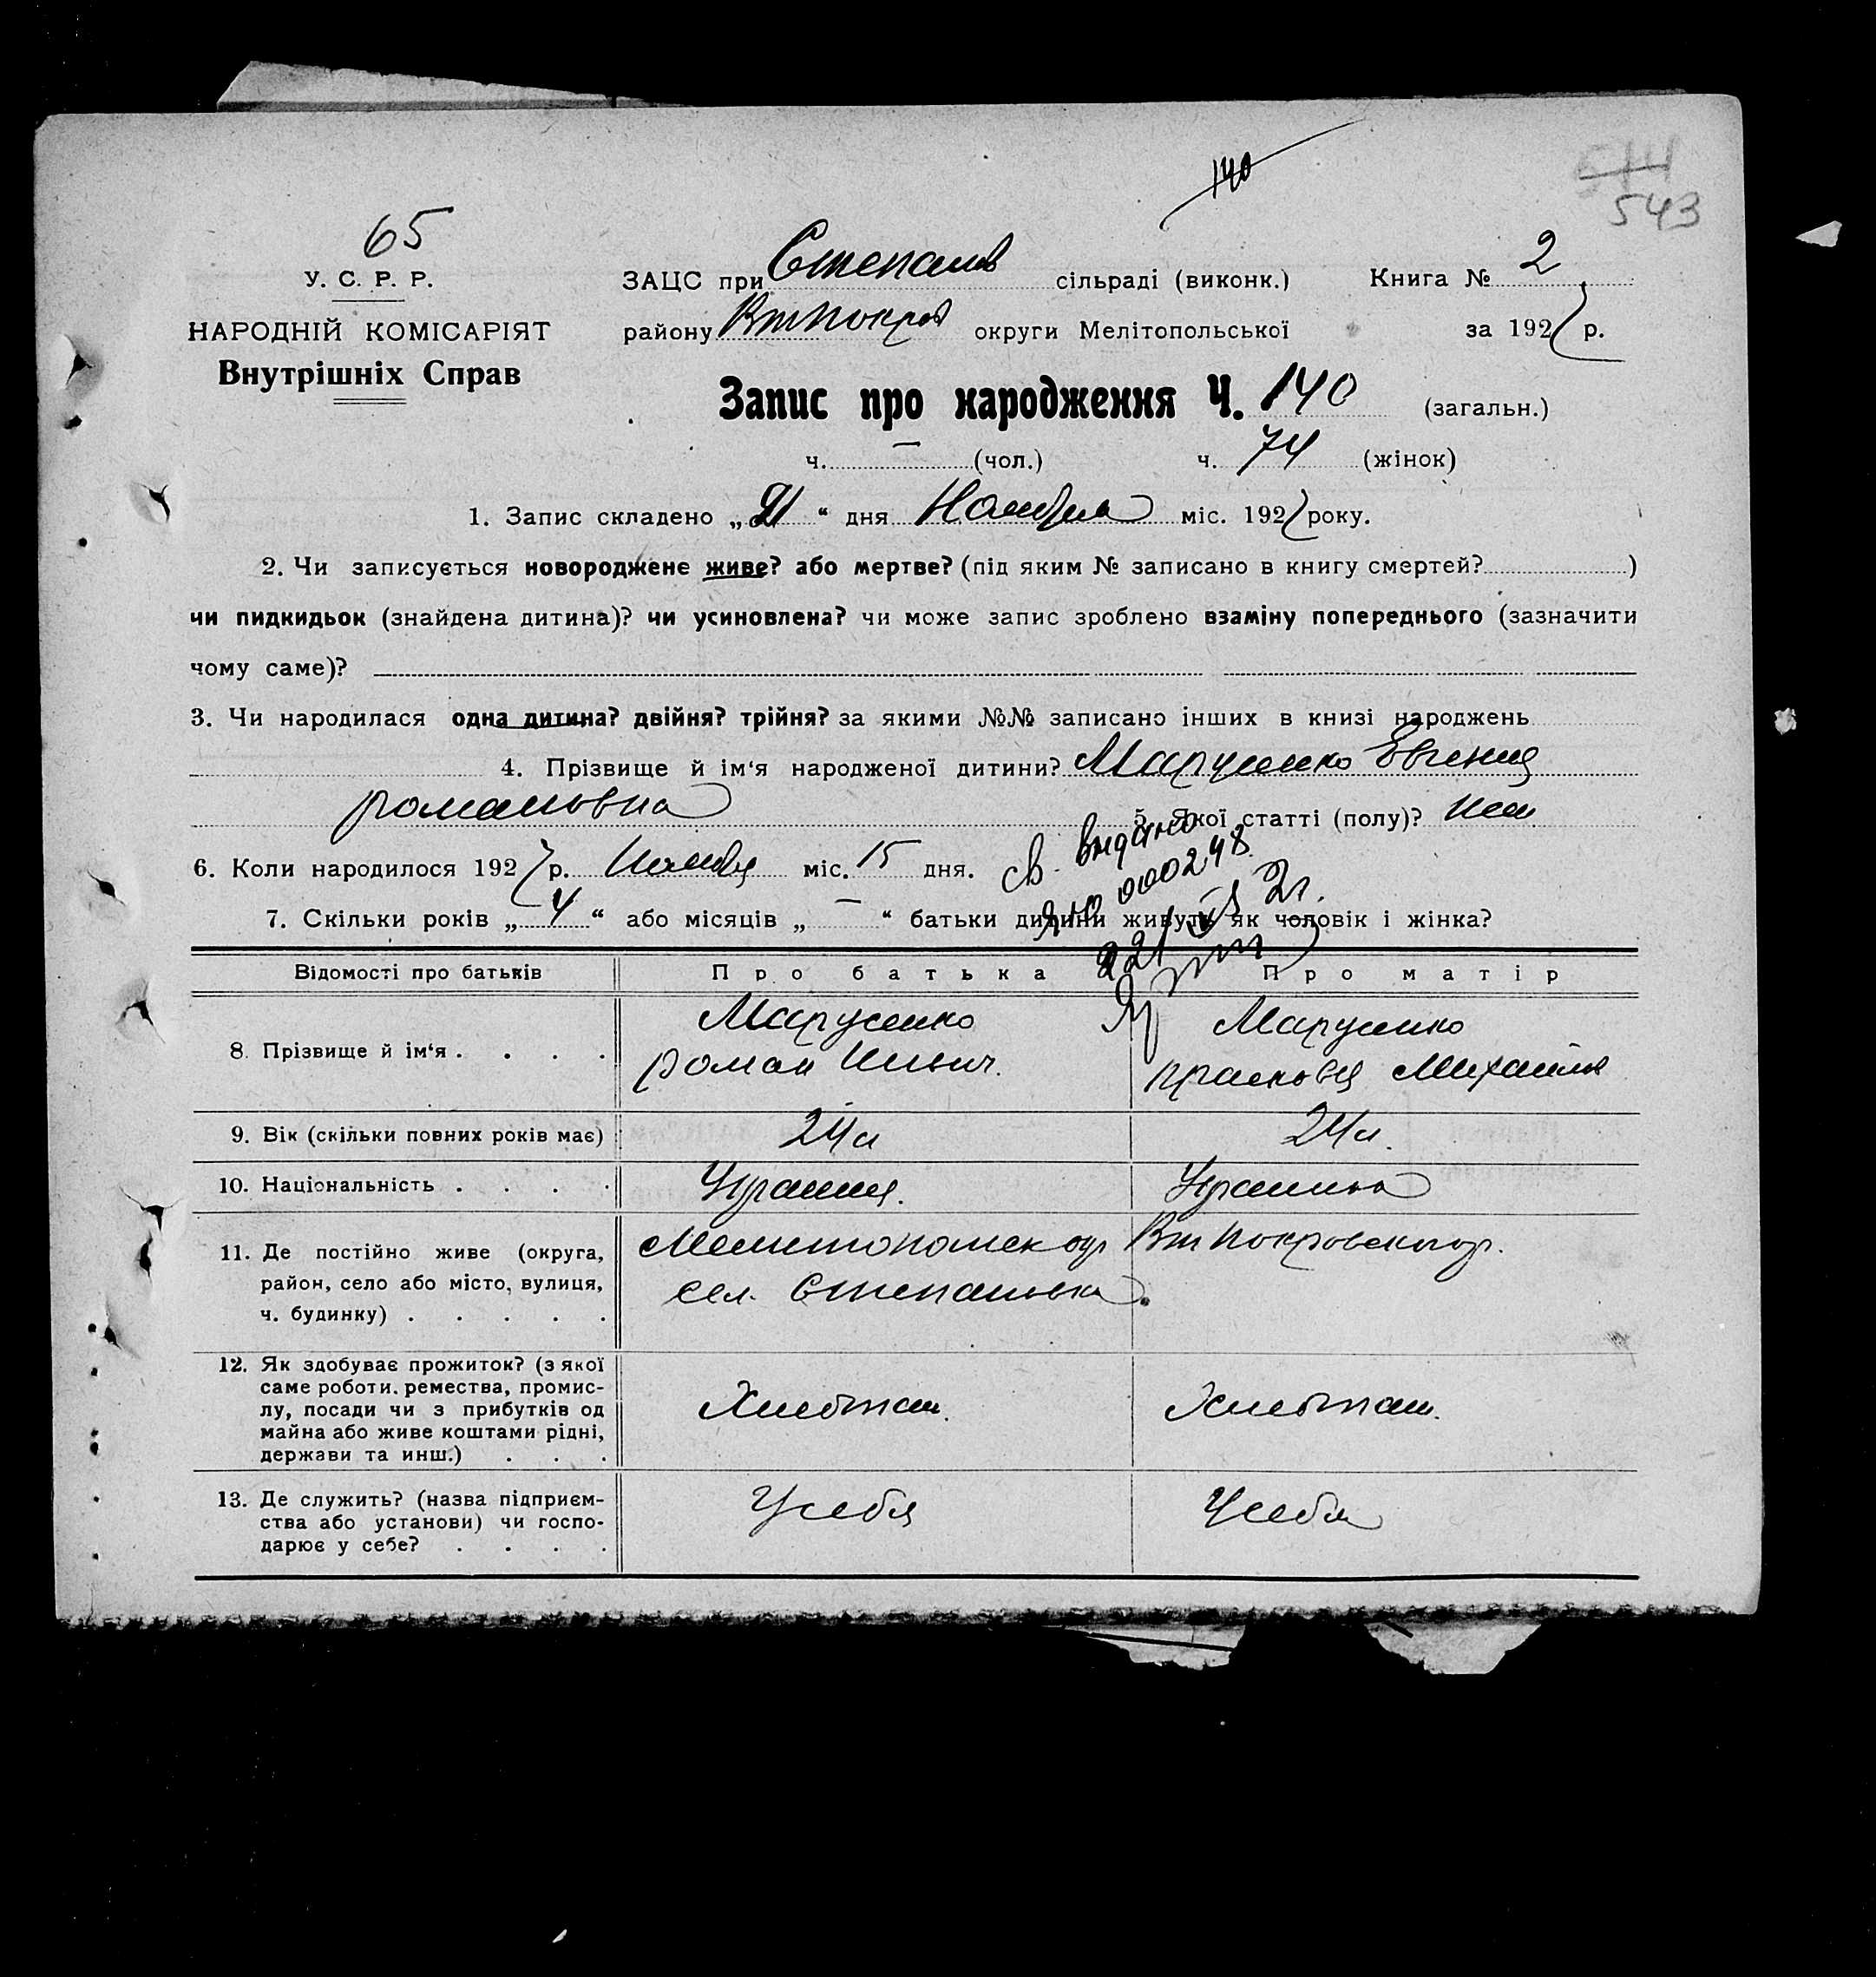 140
514
543
65
У. С. Р. Р.
НАРОДНІЙ КОМІСАРІЯТ
Внутрішніх Справ
ЗАЦС при Степанів сільраді (виконк.) Книга № 2
району ВтПокров округи Мелітопольської за 1927 р.
Запис про народження Ч. 140 (загальн.)
ч. — (чол.) ч. 74 (жінок)
1. Запис складено „21“ дня Ноября міс. 1927 року.
2. Чи записується новороджене живе? або мертве? (під яким № записано в книгу смертей? )
чи пидкидьок (знайдена дитина)? чи усиновлена? чи може запис зроблено взаміну попереднього (зазначити
чому саме)?
3. Чи народилася одна дитина? двійня? трійня? за якими №№ записано інших в книзі народжень
4. Прізвище й ім‘я народженої дитини? Марусенко Евгения
романовна 5. Якої статті (полу)? жен.
6. Коли народилося 1927 р. Ноября міс. 15 дня.
св. видано
000248
7. Скільки років „4“ або місяців „—“ батьки дитини живуть як чоловік і жінка?
Відомості про батьків Про батька Про матір
8. Прізвище й ім‘я . . . . Марусенко Марусенко
роман Ильич. прасковья Михайлов
9. Вік (скільки повних років має) 24л 24л.
10. Національність . . . . Украинец. Украинка
11. Де постійно живе (округа, Мелитопольск окр Вт Покровского р.
район, село або місто, вулиця, сел. Степановка.
ч. будинку) . . . . .
12. Як здобуває прожиток? (з якої
саме роботи. ремества, промис-
лу, посади чи з прибутків од Хлебпаш. Хлебпаш.
майна або живе коштами рідні,
держави та инш.) . . .
13. Де служить? (назва підприєм- У себя У себя
ства або установи) чи госпо-
дарює у себе? . . . .